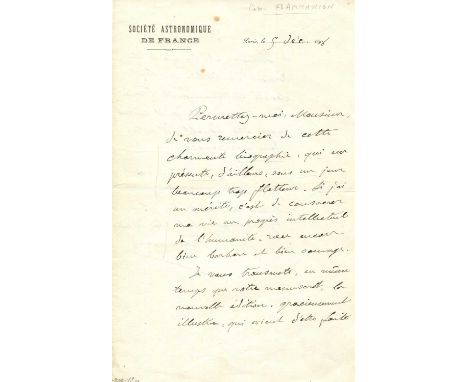 Cam. FLAMMARION
SOCIÉTÉ ASTRONOMIQUE
DE FRANCE
Paris, le 5 Déc.
Permettez-moi, Monsieur,
de vous remercier de cette
charmante biographie, qui me
présente, d'ailleurs, sous un jour
beaucoup trop flatteur. Si j'ai
un mérite, c'est de consacrer
ma vie au progrès intellectuel
de l'humanité, encore
bien barbare et bien sauvage.
Je vous transmets, en même
temps que votre manuscrit, la
nouvelle édition, gracieusement
illustrée, qui vient d'être faite